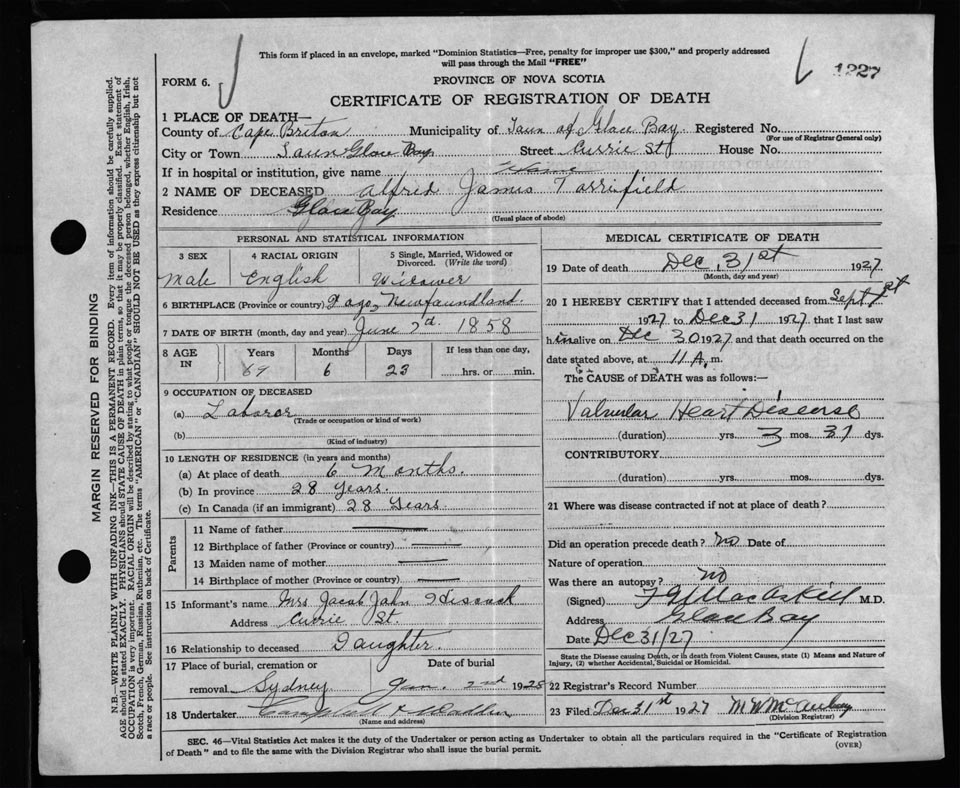 This form if placed in an envelope, marked "Dominion Statistics—Free, penalty for improper use $300," and properly addressed
will pass through the Mail "FREE"
FORM 6.
PROVINCE OF NOVA SCOTIA
1227
CERTIFICATE OF REGISTRATION OF DEATH
1 PLACE OF DEATH—
County of Cape Briton Municipality of Town of Glace Bay Registered No.
(For use of Registrar General only)
City or Town Town Glace Bay Street Currie St House No.
If in hospital or institution, give name Home
2 NAME OF DECEASED Alfred James Torrifield
Residence Glace Bay
(Usual place of abode)
PERSONAL AND STATISTICAL INFORMATION
3 SEX 4 RACIAL ORIGIN 5 Single, Married, Widowed or Divorced. (Write the word)
Male English Widower
6 BIRTHPLACE (Province or country) Fogo Newfoundland.
7 DATE OF BIRTH (month, day and year) June 2d. 1858
8 AGE IN Years Months Days If less than one day,
69 6 23 hrs. or min.
9 OCCUPATION OF DECEASED
(a) Laborer
(Trade or occupation or kind of work)
(b)
(Kind of industry)
10 LENGTH OF RESIDENCE (in years and months)
(a) At place of death 6 Months.
(b) In province 28 Years.
(c) In Canada (if an immigrant) 28 Years.
Parents
11 Name of father
12 Birthplace of father (Province or country)
13 Maiden name of mother
14 Birthplace of mother (Province or country)
15 Informant's name Mrs Jacob John Hiscock
Address Currie St.
16 Relationship to deceased Daughter.
17 Place of burial, cremation or Date of burial
removal Sydney Jan. 2nd 1928
18 Undertaker
(Name and address)
MEDICAL CERTIFICATE OF DEATH
19 Date of death Dec. 31st 1927
(Month, day and year)
20 I HEREBY CERTIFY that I attended deceased from Sept 1st
1927 to Dec 31 1927 that I last saw
him alive on Dec 30 1927 and that death occurred on the
date stated above, at 11 A. m.
The CAUSE of DEATH was as follows:—
Valvular Heart Disease
(duration) yrs. 3 mos. 31 dys.
CONTRIBUTORY
(duration) yrs. mos. dys.
21 Where was disease contracted if not at place of death?
Did an operation precede death? no Date of
Nature of operation
Was there an autopsy? no
(Signed) MacAskill M.D.
Address Glace Bay
Date Dec 31/27
State the Disease causing Death, or in death from Violent Causes, state (1) Means and Nature of
Injury, (2) whether Accidental, Suicidal or Homicidal.
22 Registrar's Record Number
23 Filed Dec 31st 1927
(Division Registrar)
SEC. 46—Vital Statistics Act makes it the duty of the Undertaker or person acting as Undertaker to obtain all the particulars required in the "Certificate of Registration
of Death" and to file the same with the Division Registrar who shall issue the burial permit.
(OVER)
MARGIN RESERVED FOR BINDING
N.B.—WRITE PLAINLY WITH UNFADING INK—THIS IS A PERMANENT RECORD. Every item of information should be carefully supplied.
AGE should be stated EXACTLY. PHYSICIANS should STATE CAUSE OF DEATH in plain terms, so that it may be properly classified. Exact statement of
OCCUPATION is very important. RACIAL ORIGIN will be described by stating to what people or tongue the deceased person belonged, whether English, Irish,
Scotch, French, German, Russian, Ruthenian, etc. The terms "AMERICAN" or "CANADIAN" SHOULD NOT BE USED as they express citizenship but not
a race or people. See instructions on back of Certificate.